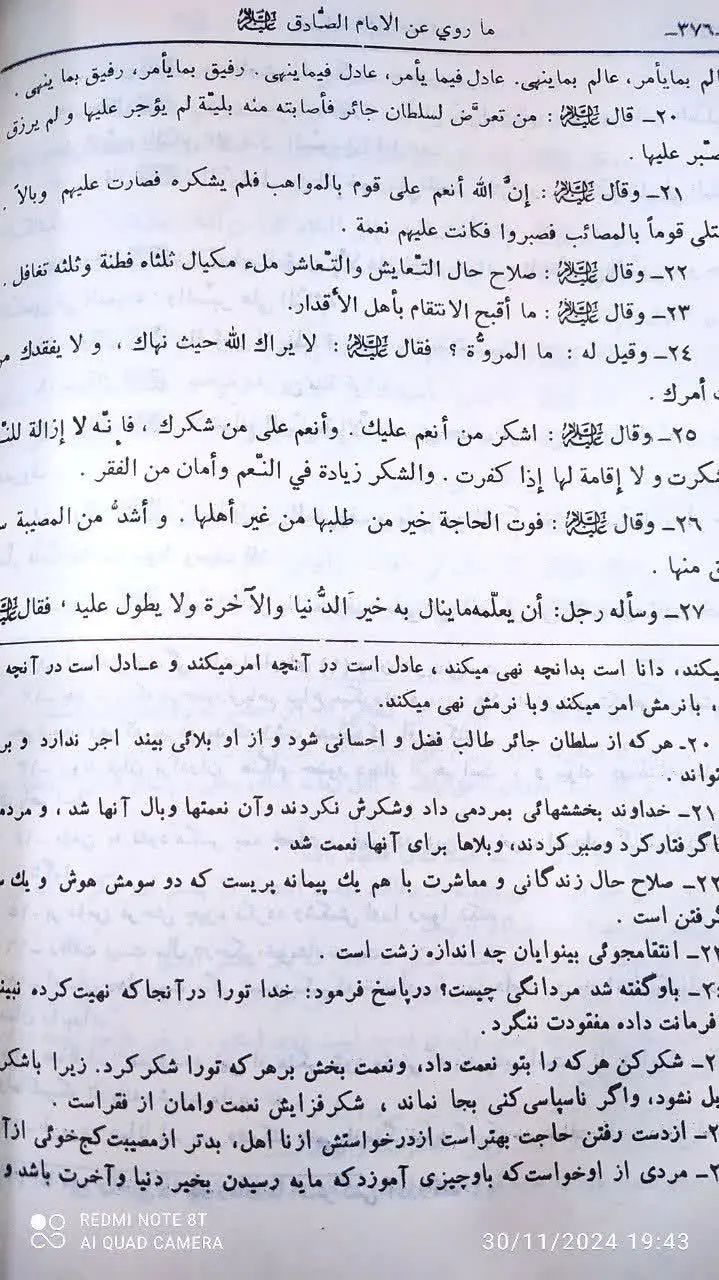 -٣٧٦- ما روي عن الامام الصّادق عليه السلام
بما يأمر، عالم بما ينهى. عادل فيما يأمر، عادل فيما ينهى. رفيق بما يأمر، رفيق بما ينهى.
٢٠- قال عليه السلام: من تعرَّض لسلطان جائر فأصابته منه بليّة لم يؤجر عليها و لم يرزق
عليها.
٢١- وقال عليه السلام: إنَّ الله أنعم على قوم بالمواهب فلم يشكره فصارت عليهم وبالاً.
قوماً بالمصائب فصبروا فكانت عليهم نعمة.
٢٢- وقال عليه السلام: صلاح حال التّعايش والتّعاشر ملء مكيال ثلثاه فطنة وثلثه تغافل.
٢٣- وقال عليه السلام: ما أقبح الانتقام بأهل الأقدار.
٢٤- وقيل له: ما المروَّة؟ فقال عليه السلام: لا يراك الله حيث نهاك، و لا يفقدك
أمرك.
٢٥- وقال عليه السلام: اشكر من أنعم عليك. وأنعم على من شكرك، فإنّه لا إزالة
شكرت و لا إقامة لها إذا كفرت. والشكر زيادة في النّعم وأمان من الفقر.
٢٦- وقال عليه السلام: فوت الحاجة خير من طلبها من غير أهلها. و أشدُّ من المصيبة
منها.
٢٧- وسأله رجل: أن يعلّمه ما ينال به خير الدُّنيا والآخرة ولا يطول عليه، فقال
میکند، دانا است بدانچه نهی میکند، عادل است در آنچه امر میکند و عادل است در آنچه
، بانرمش امر میکند وبا نرمش نهی میکند.
٢٠- هر که از سلطان جائر طالب فضل و احسانی شود و از او بلائی بیند اجر ندارد و
تواند.
٢١- خداوند بخششهائی بمردمی داد وشکرش نکردند وآن نعمتها وبال آنها شد، و
گرفتار کرد وصبر کردند، وبلاها برای آنها نعمت شد.
صلاح حال زندگانی و معاشرت با هم یك پیمانه پریست که دو سومش هوش و یك
گرفتن است.
انتقامجوئی بینوایان چه اندازه زشت است.
باو گفته شد مردانگی چیست؟ در پاسخ فرمود: خدا تورا در آنجا که نهیت کرده
فرمانت داده مفقودت ننگرد.
شکر کن هر که را بتو نعمت داد، ونعمت بخش بر هر که تورا شکر کرد. زیرا
نشود، واگر ناسپاسی کنی بجا نماند، شکر فزایش نعمت وامان از فقر است.
ازدست رفتن حاجت بهتر است از درخواستش از نا اهل، بدتر از مصیبت کج خوئی
مردی از او خواست که باو چیزی آموزد که مایه رسیدن بخیر دنیا و آخرت باشد و
REDMI NOTE 8T
AI QUAD CAMERA
30/11/2024 19:43